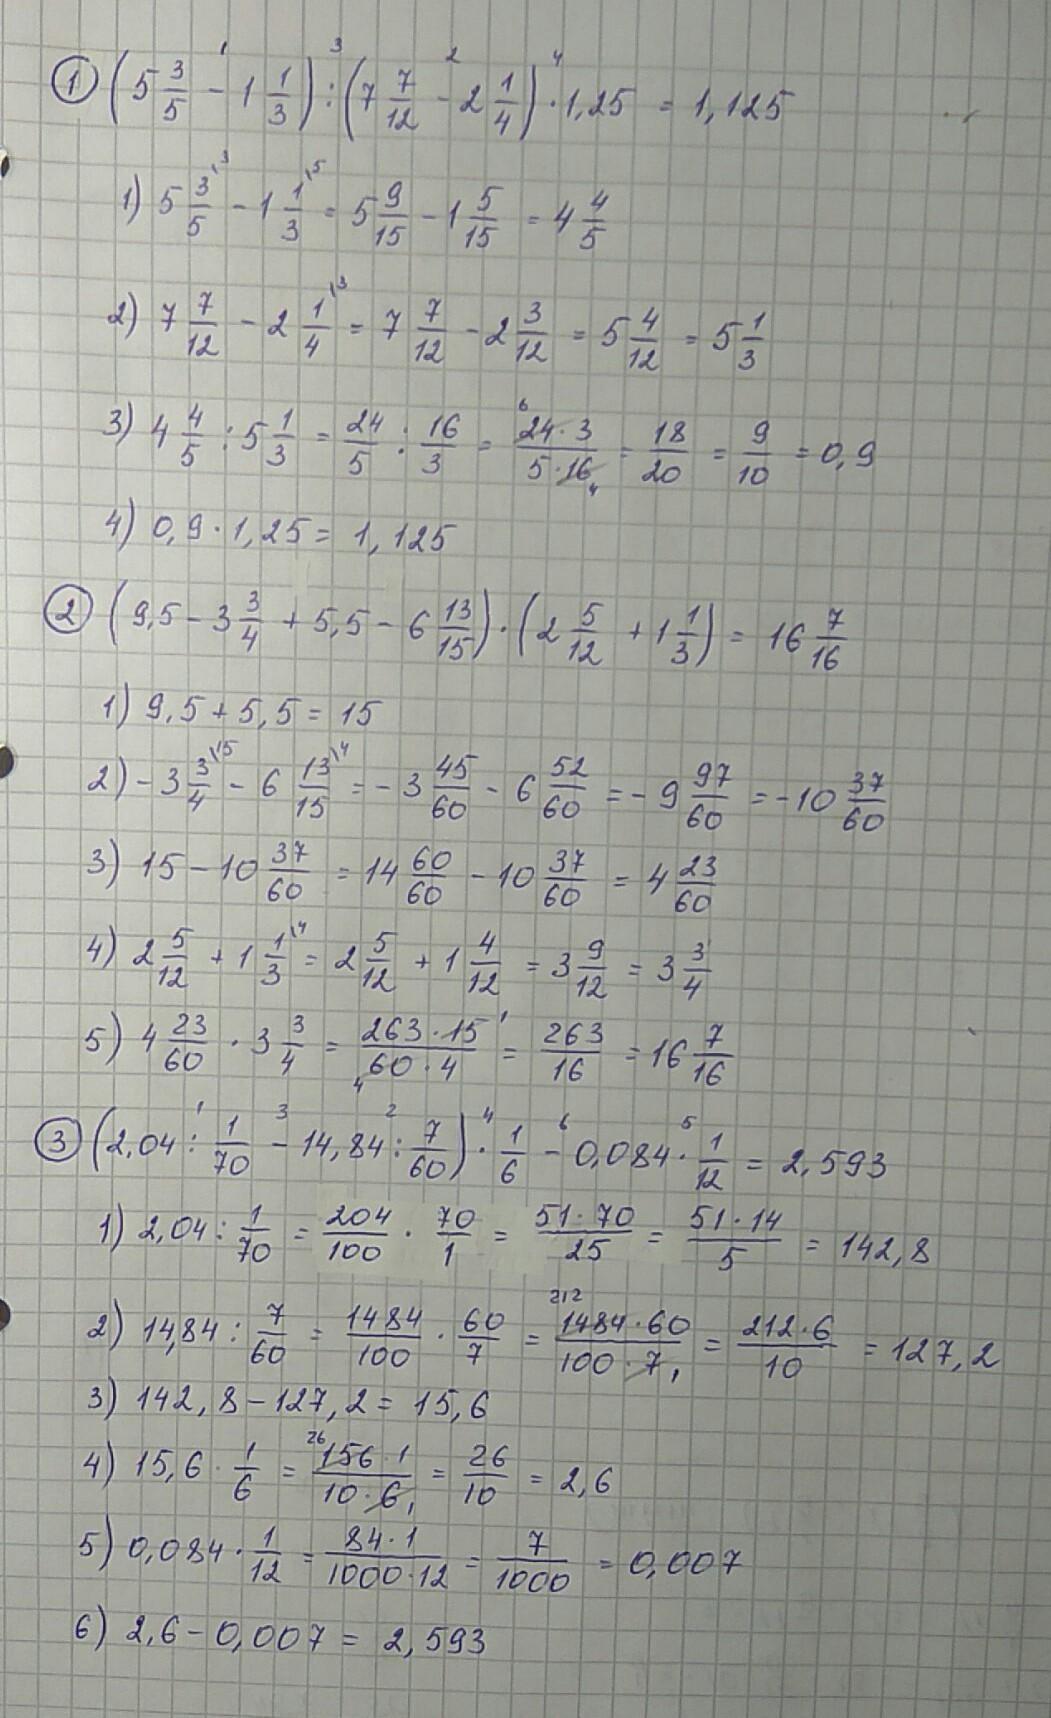 ① (5 3/5 - 1 1/3) : (7 7/12 - 2 1/4) · 1,25 = 1,125
1) 5 3/5 - 1 1/3 = 5 9/15 - 1 5/15 = 4 4/5
2) 7 7/12 - 2 1/4 = 7 7/12 - 2 3/12 = 5 4/12 = 5 1/3
3) 4 4/5 : 5 1/3 = 24/5 : 16/3 = 24·3/5·16 = 18/20 = 9/10 = 0,9
4) 0,9 · 1,25 = 1,125
② (9,5 - 3 3/4 + 5,5 - 6 13/15) · (2 5/12 + 1 1/3) = 16 7/16
1) 9,5 + 5,5 = 15
2) - 3 3/4 - 6 13/15 = - 3 45/60 - 6 52/60 = - 9 97/60 = - 10 37/60
3) 15 - 10 37/60 = 14 60/60 - 10 37/60 = 4 23/60
4) 2 5/12 + 1 1/3 = 2 5/12 + 1 4/12 = 3 9/12 = 3 3/4
5) 4 23/60 · 3 3/4 = 263·15/60·4 = 263/16 = 16 7/16
③ (2,04 : 1/70 - 14,84 : 7/60) · 1/6 - 0,084 · 1/12 = 2,593
1) 2,04 : 1/70 = 204/100 · 70/1 = 51·70/25 = 51·14/5 = 142,8
2) 14,84 : 7/60 = 1484/100 · 60/7 = 1484·60/100·7 = 212·6/10 = 127,2
3) 142,8 - 127,2 = 15,6
4) 15,6 · 1/6 = 156·1/10·6 = 26/10 = 2,6
5) 0,084 · 1/12 = 84·1/1000·12 = 7/1000 = 0,007
6) 2,6 - 0,007 = 2,593